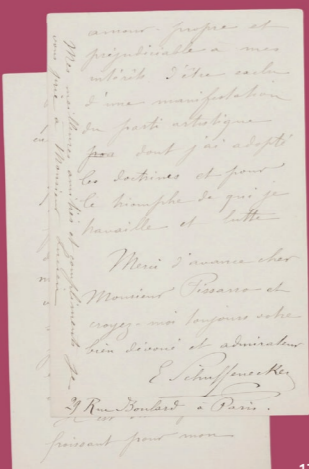 amour-propre et
préjudiciable à mes
intérêts d'être exclu
d'une manifestation
du parti artistique
dont j'ai adopté
les doctrines et pour
le triomphe de qui je
travaille et lutte
Merci d'avance cher
Monsieur Pissarro et
croyez-moi toujours votre
bien dévoué et admirateur
E Schuffenecker
29 Rue Boulard à Paris.
Mes meilleures amitiés et compliments je
vous prie à Monsieur Lucien
froissant pour mon